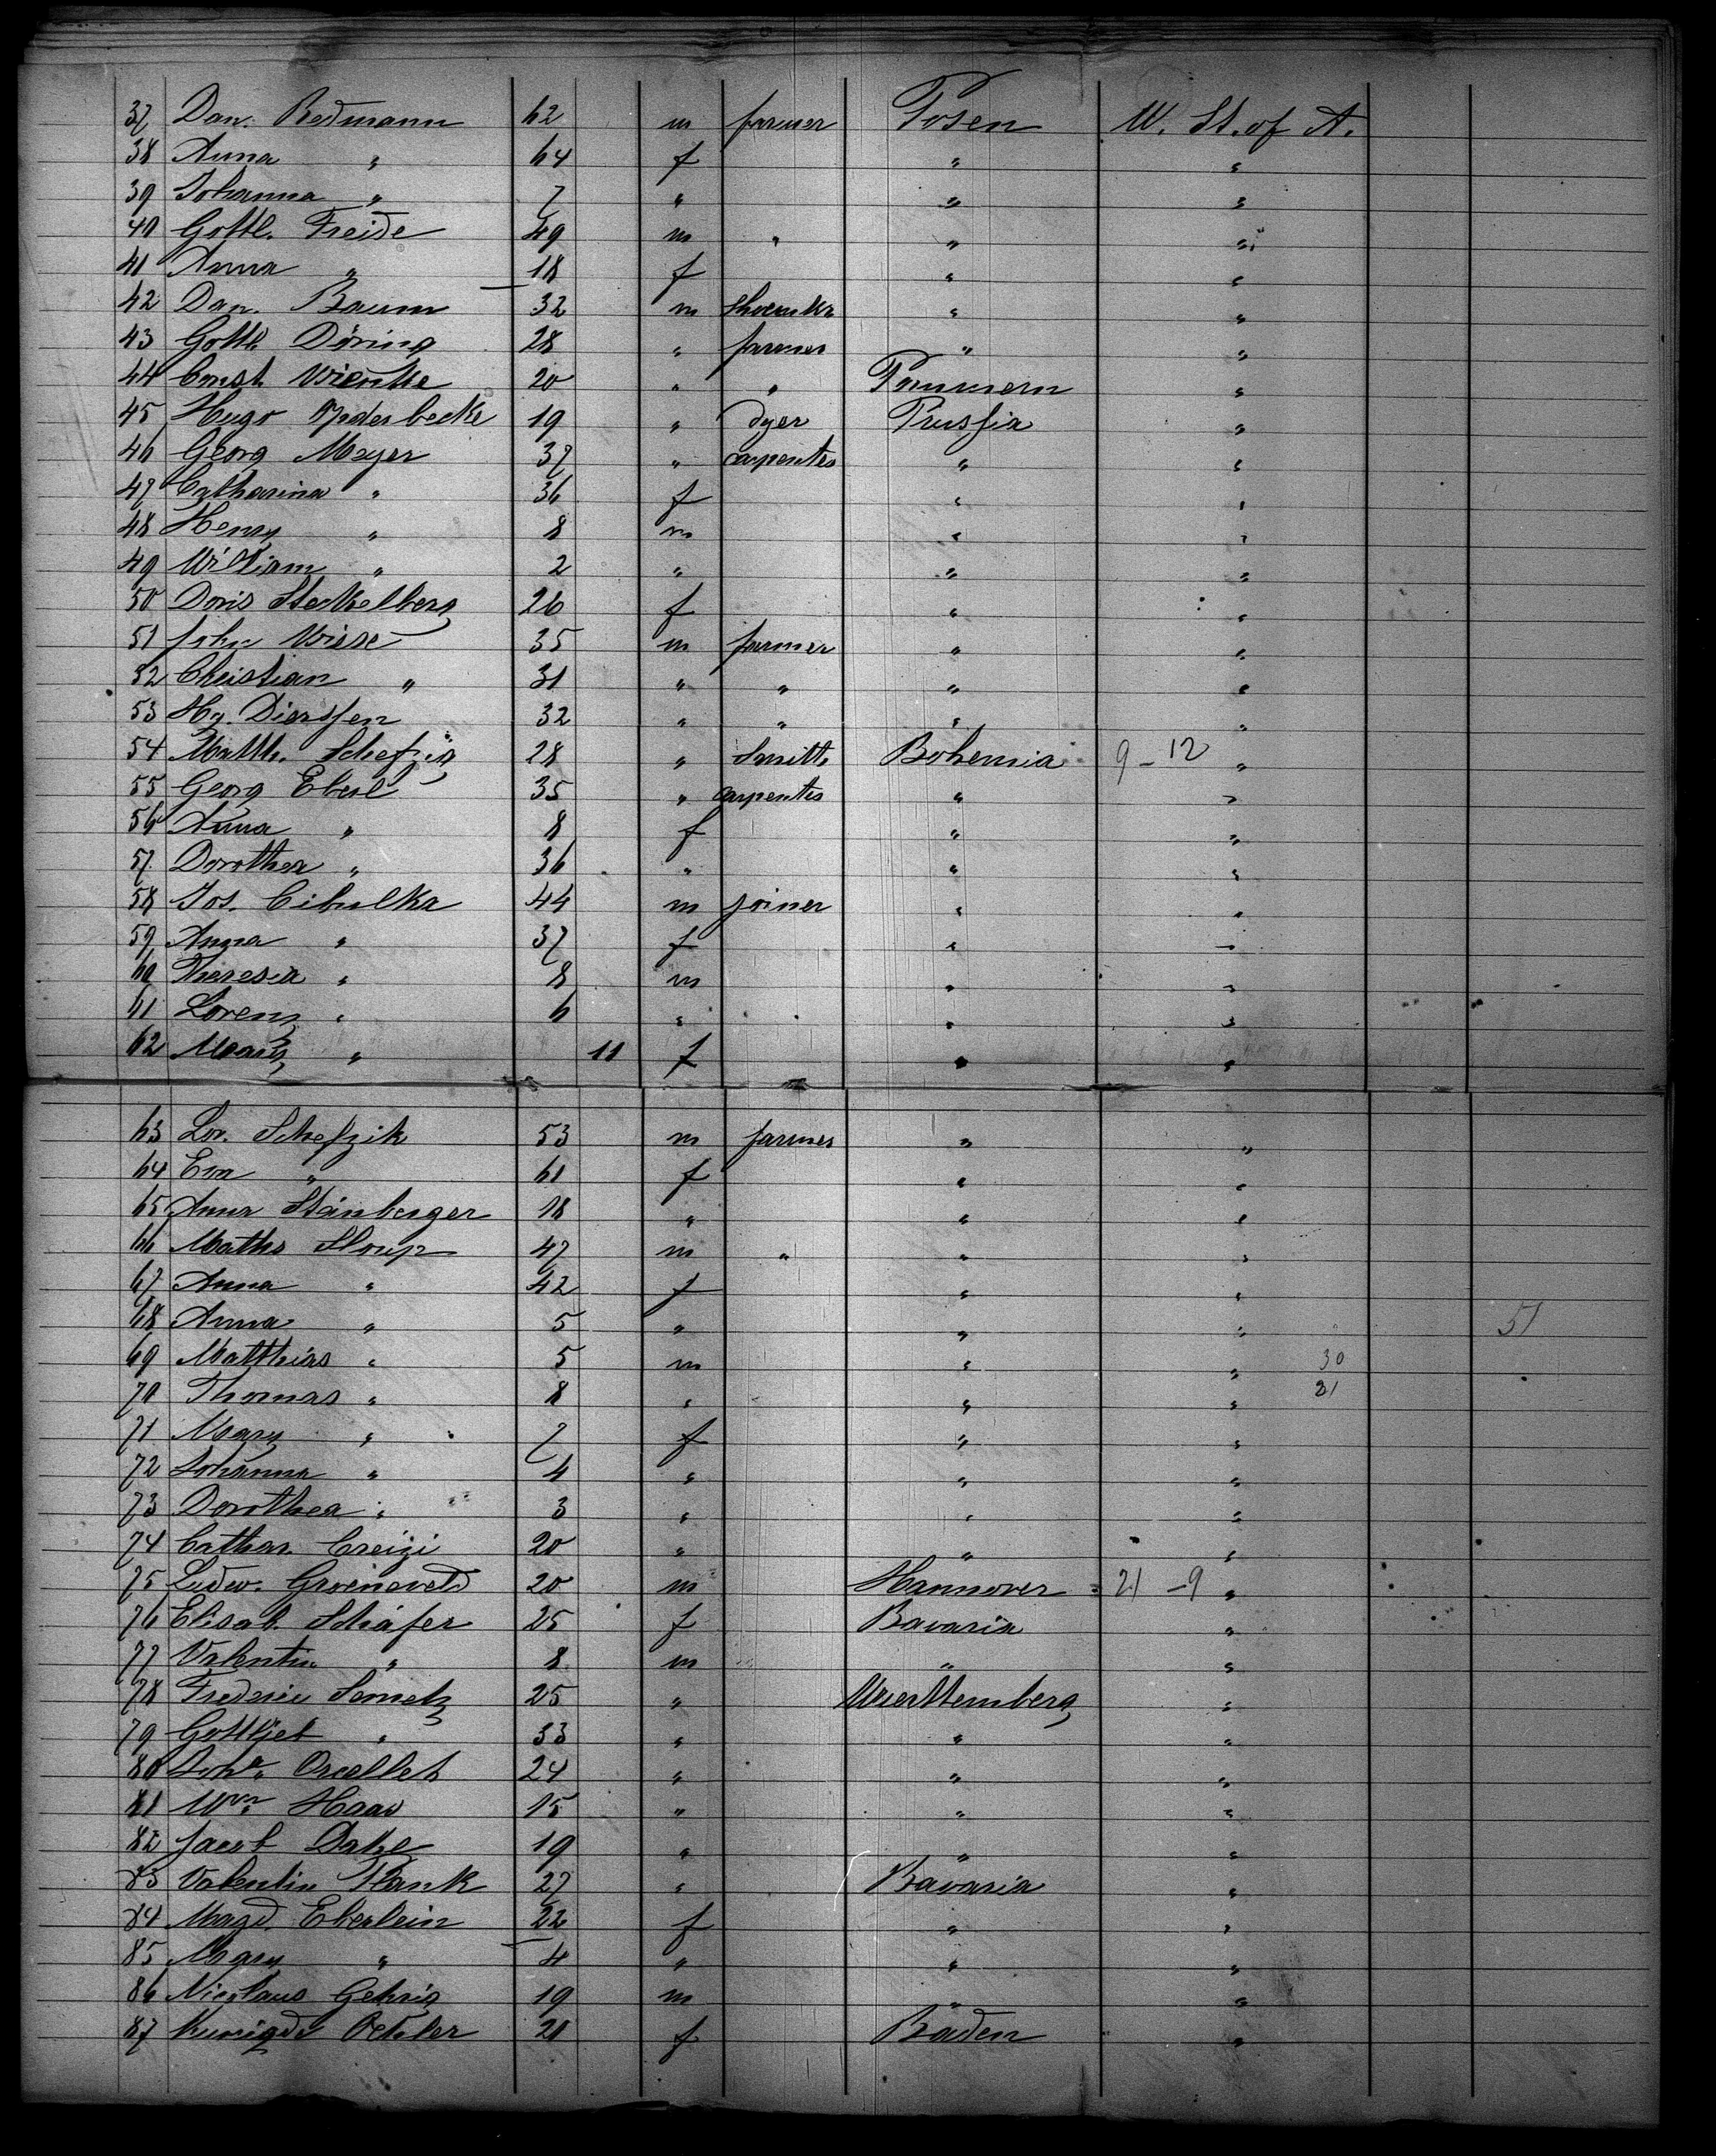 37 Dan. Redmann 62 m farmer Posen U. St. of A.
38 Anna " 64 f " "
39 Johanna " 7 " " "
40 Gottl. Freide 49 m " " "
41 Anna " 18 f " "
42 Dan. Baum 32 m shoemkr " "
43 Gottl. Döring 28 " farmer " "
44 Const. 20 " " Pommern "
45 Hugo Opderbecke 19 " dyer Prussia "
46 Georg Meyer 37 " carpenter " "
47 Catharina " 36 f " "
48 Henry " 8 m " "
49 William " 2 " " "
50 Doris Steckelberg 26 f " "
51 John Wiese 35 m farmer " "
52 Christian " 31 " " " "
53 Hy. Dierssen 32 " " " "
54 Matth. Schefzig 28 " Smith Bohemia 9-12 "
55 Georg Eberl 35 " carpenter " "
56 Anna " 8 f " "
57 Dorothea " 36 " " "
58 Jos. Cibulka 44 m joiner " "
59 Anna " 37 f " "
60 Theresia " 8 m " "
61 Lorenz " 6 " " "
62 Mary " 11 f " "
63 Lor. Schefzik 53 m farmer " "
64 Eva " 61 f " "
65 Anna Stänberger 18 " " "
66 Maths Sloup 47 m " " "
67 Anna " 42 f " "
68 Anna " 5 " " " 51
69 Matthias " 5 m " " 30
70 Thomas " 8 " " " 21
71 Mary " 7 f " "
72 Johanna " 4 " " "
73 Dorothea " 3 " " "
74 Cathar. Creizi 20 " " "
75 Ludw. Groeneveld 20 m Hannover 21-9 "
76 Elisab. Schäfer 25 f Bavaria "
77 Valentin " 8 m " "
78 25 " Wuerttemberg "
79 Gottlieb " 33 " " "
80 Joh. 24 " " "
81 Wm. Haas 15 " " "
82 Jacob 19 " " "
83 Valentin Plank 27 " Bavaria "
84 Magd. Eberlein 22 f " "
85 Mary " 4 " " "
86 Nicolaus Gehrig 19 m " "
87 21 f Baden "